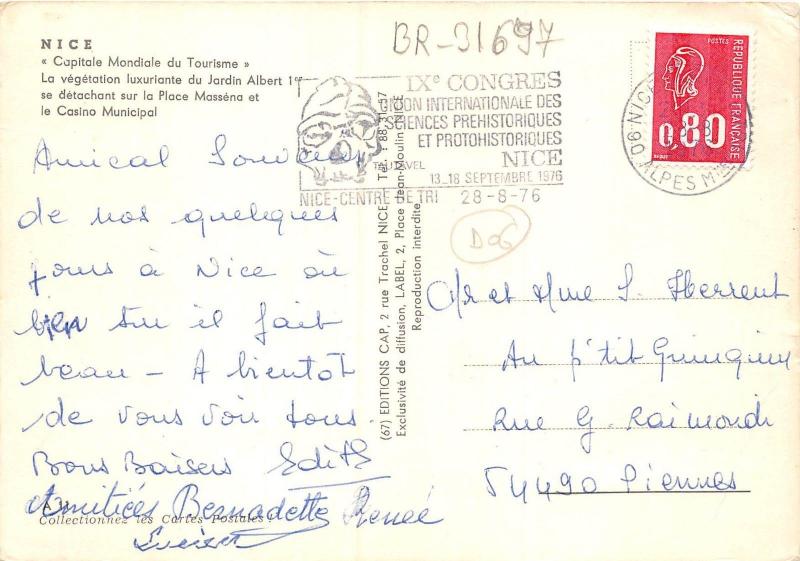 NICE
« Capitale Mondiale du Tourisme »
La végétation luxuriante du Jardin Albert 1er
se détachant sur la Place Masséna et
le Casino Municipal
BR-31697
IXe CONGRES
UNION INTERNATIONALE DES
SCIENCES PREHISTORIQUES
ET PROTOHISTORIQUES
NICE
TAUTAVEL
13_18 SEPTEMBRE 1976
NICE-CENTRE DE TRI 28-8-76
POSTES
REPUBLIQUE FRANÇAISE
0,80
06 NICE
ALPES Mmes
D06
Amical Souvenir
de nos quelques
jours à Nice où
bien sur il fait
beau _ A bientôt
de vous voir tous.
Bons Baisers Edith
Amitiés Bernadette Renée
Collectionnez les Cartes Postales !
(67) EDITIONS CAP, 2 rue Trachel NICE Tél.
Exclusivité de diffusion, LABEL, 2, Place Jean-Moulin NICE
Reproduction interdite
Mr et Mme S.
Au p'tit Quinquin
Rue G. Raimondi
54490 Piennes